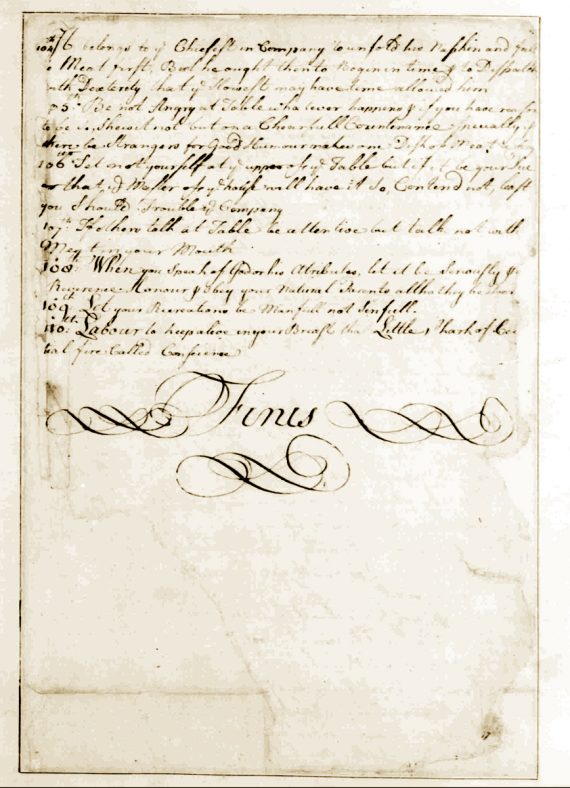 104th It belongs to ye Chiefest in Company to unfold his Napkin and fall
to Meat first, But he ought then to Begin in time & to Dispatch
with Dexterity that ye Slowest may have time allowed him
105th Be not Angry at Table whatever happens & if you have reason
to be so, Shew it not but on a Chearfull Countenance especially if
there be Strangers for Good Humour makes one Dish of Meat a
106th Set not yourself at ye upper of ye Table but if it be your Due
or that ye Master of ye house will have it So, Contend not, least
you Should Trouble ye Company
107th If others talk at Table be attentive but talk not with
Meat in your Mouth
108th When you Speak of God or his Atributes, let it be Seriously &
Reverence. Honour & Obey your Natural Parents altho they be Poor
109th Let your Recreations be Manfull not Sinfull.
110th Labour to keep alive in your Breast that Little Spark of Ce
tial fire Called Conscience
Finis